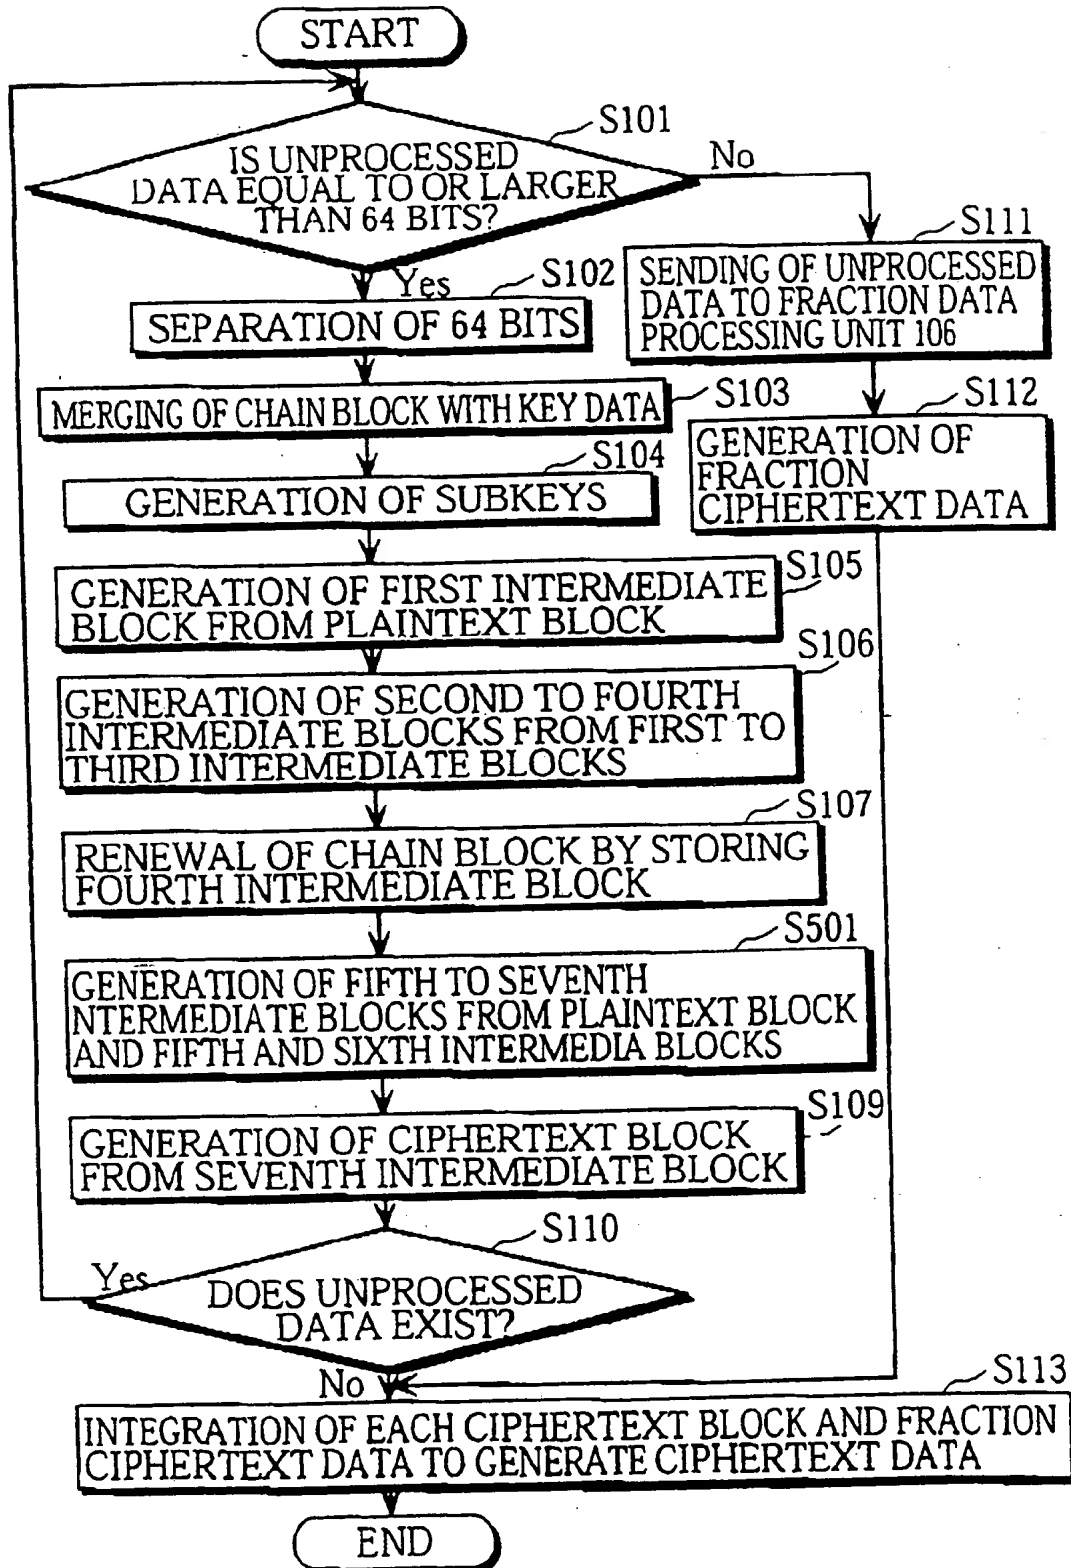 START
S101
IS UNPROCESSED
DATA EQUAL TO OR LARGER
THAN 64 BITS?
No
Yes
S102
SEPARATION OF 64 BITS
S103
MERGING OF CHAIN BLOCK WITH KEY DATA
S104
GENERATION OF SUBKEYS
S105
GENERATION OF FIRST INTERMEDIATE
BLOCK FROM PLAINTEXT BLOCK
S106
GENERATION OF SECOND TO FOURTH
INTERMEDIATE BLOCKS FROM FIRST TO
THIRD INTERMEDIATE BLOCKS
S107
RENEWAL OF CHAIN BLOCK BY STORING
FOURTH INTERMEDIATE BLOCK
S501
GENERATION OF FIFTH TO SEVENTH
NTERMEDIATE BLOCKS FROM PLAINTEXT BLOCK
AND FIFTH AND SIXTH INTERMEDIA BLOCKS
S109
GENERATION OF CIPHERTEXT BLOCK
FROM SEVENTH INTERMEDIATE BLOCK
S110
Yes
DOES UNPROCESSED
DATA EXIST?
No
S111
SENDING OF UNPROCESSED
DATA TO FRACTION DATA
PROCESSING UNIT 106
S112
GENERATION OF
FRACTION
CIPHERTEXT DATA
S113
INTEGRATION OF EACH CIPHERTEXT BLOCK AND FRACTION
CIPHERTEXT DATA TO GENERATE CIPHERTEXT DATA
END